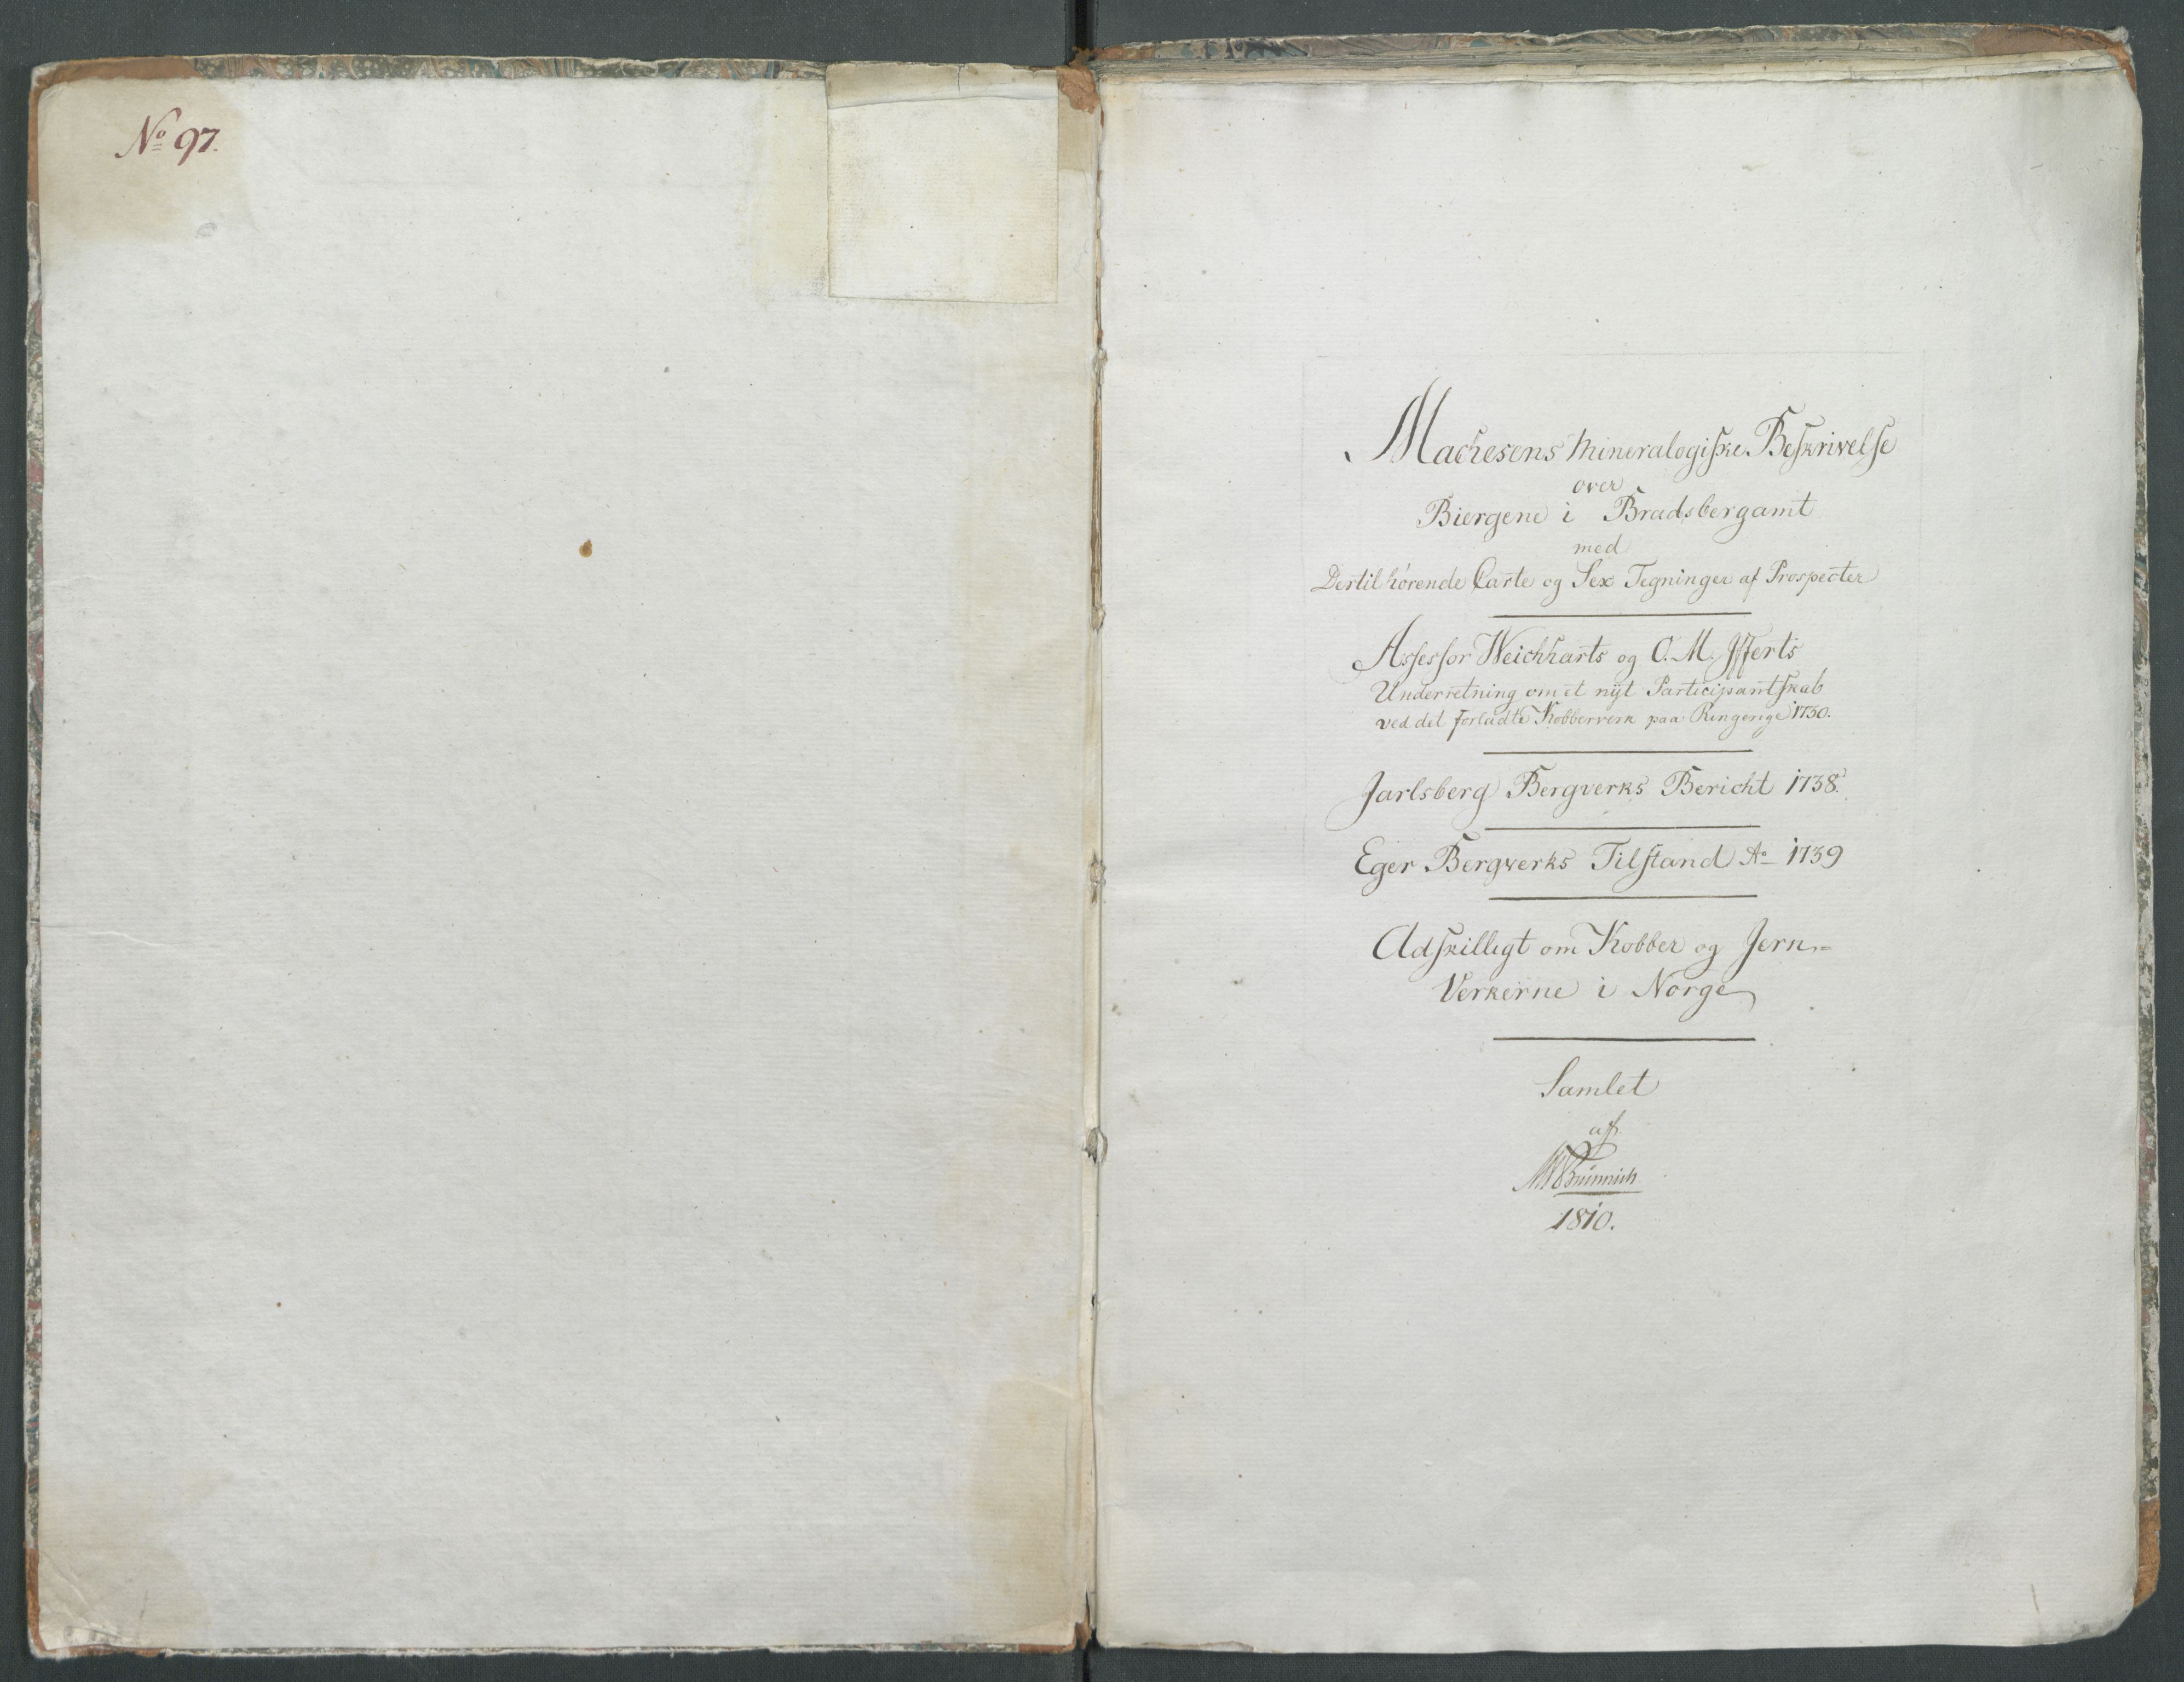 No 97.
Machesens Mineralogiske Beskrivelse
over
Biergene i Bradsbergamt
med
Dertil hørende Carte og Sex Tegninger af Prospecter
Assessor Weichharts og O. M. Ifferts
Underretning om et nÿt Participantskab
ved det forladte Kobberverk paa Ringerige 1730.
Jarlsberg Bergverks Bericht 1738.
Eger Bergverks Tilstand Ao 1739
Adskilligt om Kobber og Jern-
Verkerne i Norge
Samlet
af
MTBrünnich
1810.